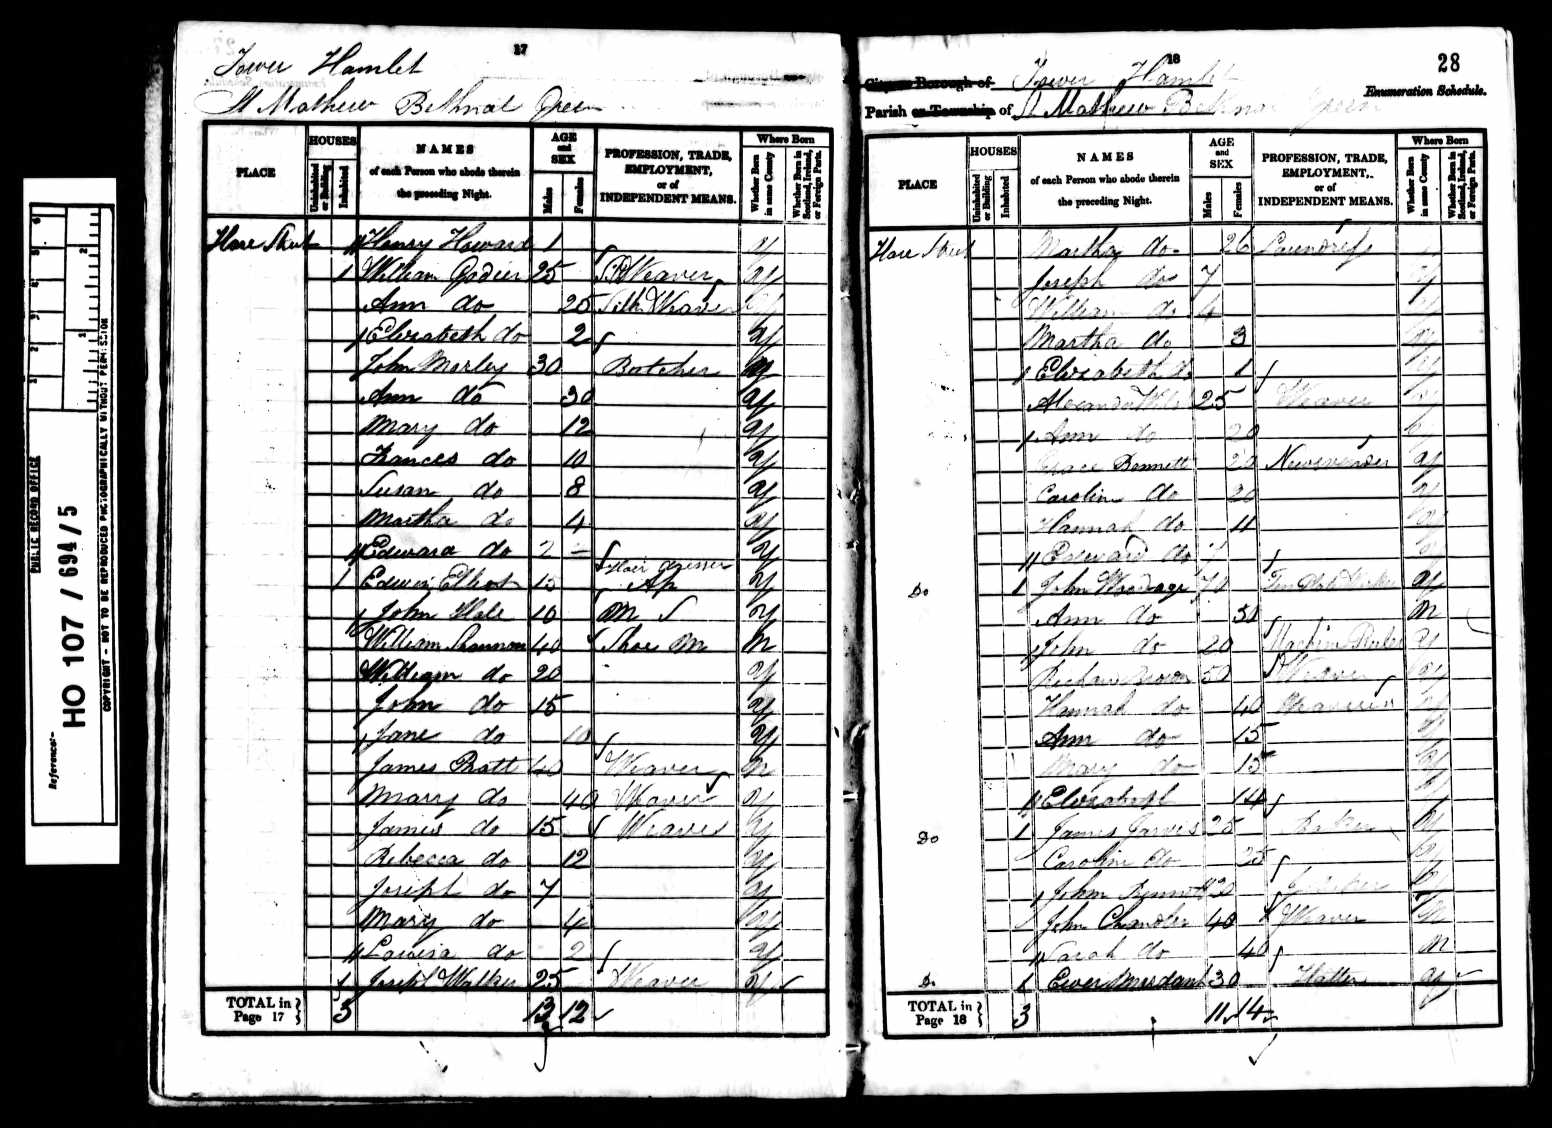 17
Tower Hamlet
St Mathew Bethnal Green
PLACE
HOUSES
Uninhabited or Building
Inhabited
NAMES
of each Person who abode therein
the preceding Night.
AGE and SEX
Males
Females
PROFESSION, TRADE,
EMPLOYMENT,
or of
INDEPENDENT MEANS.
Where Born
Whether Born in same County
Whether Born in Scotland, Ireland, or Foreign Parts.
Hare Street Henry Howard 1 y
1 William 25 Weaver y
Ann do 25 Silk Weaver y
Elizabeth do 2 y
John Morley 30 Butcher y
Ann do 30 y
Mary do 12 y
Frances do 10 y
Susan do 8 y
Martha do 4 y
Edward do 2 y
1 Edwin Elliot 15 Hair dresser Ap y
John Hale 10 M S y
William 40 Shoe M n
William do 20 y
John do 15 y
Jane do 10 y
James Pratt 40 Weaver n
Mary do 40 Weaver y
James do 15 Weaver y
Rebecca do 12 y
Joseph do 7 y
Mary do 4 y
Louisa do 2 y
1 Joseph Walker 25 Weaver y
TOTAL in Page 17 3 13 12
18
28
City or Borough of Tower Hamlet
Enumeration Schedule.
Parish or Township of St Mathew Bethnal Green
PLACE
HOUSES
Uninhabited or Building
Inhabited
NAMES
of each Person who abode therein
the preceding Night.
AGE and SEX
Males
Females
PROFESSION, TRADE,
EMPLOYMENT,
or of
INDEPENDENT MEANS.
Where Born
Whether Born in same County
Whether Born in Scotland, Ireland, or Foreign Parts.
Hare Street Martha do 26 Laundress
Joseph do 7 y
William do 4 y
Martha do 3 y
Elizabeth do 1 y
Alexander 25 Weaver y
Ann do 20 y
Grace Bennett 20 Newsvender y
Caroline do 20 y
Hannah do 11 y
Edward do 7 y
Do 1 John Woodage 70 y
Ann do 50 n
John do 20 y
Richard Brown 50 Weaver y
Hannah do 40 y
Ann do 15 y
Mary do 15 y
Elizabeth 14 y
Do 1 James Jarvis 25 Baker y
Caroline do 25 y
John Bennett 20 y
John Chandler 40 Weaver n
Sarah do 40 n
Do 1 Mordant 30 Hatter y
TOTAL in Page 18 3 11 14
PUBLIC RECORD OFFICE
Reference:-
HO 107 / 694 / 5
COPYRIGHT - NOT TO BE REPRODUCED PHOTOGRAPHICALLY WITHOUT PERMISSION
1 2 3 4 5 6
1 2